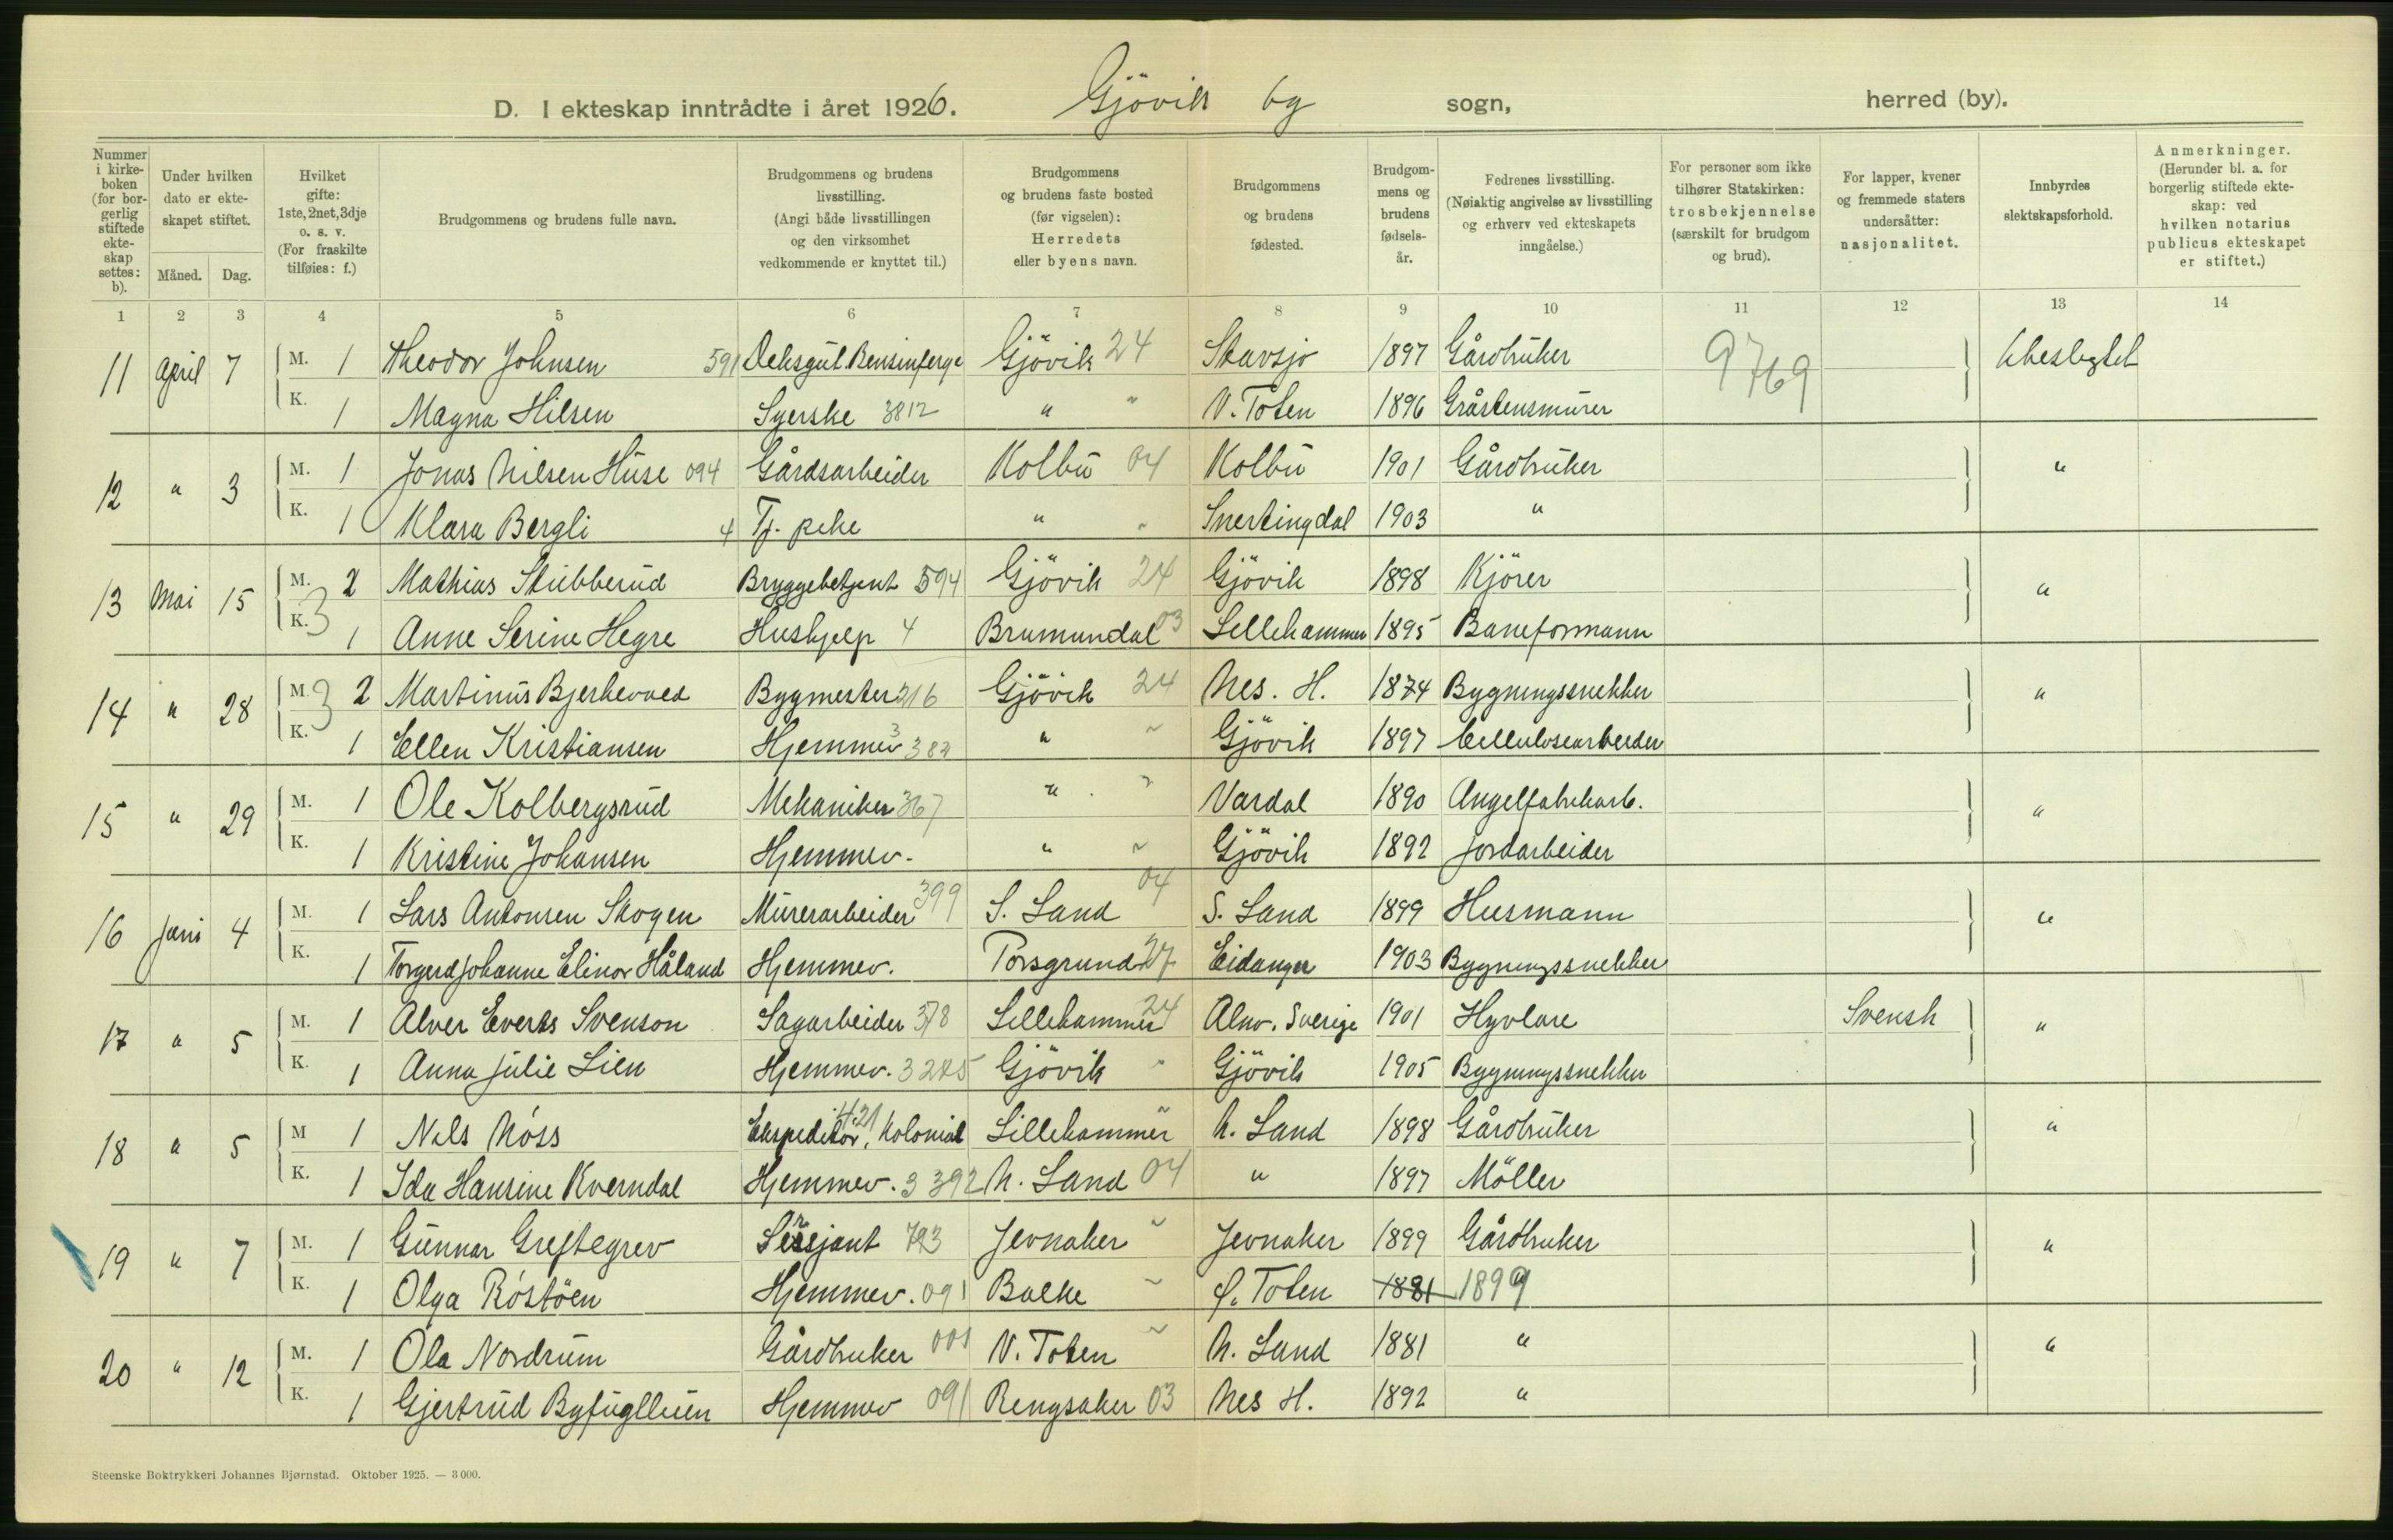 D. I ekteskap inntrådte i året 1926. Gjövik by sogn, herred (by).
Nummer i kirke- boken (for bor- gerlig stiftede ekte- skap settes: b).
Under hvilken dato er ekte- skapet stiftet.
Måned. Dag.
Hvilket gifte: 1ste, 2net, 3dje o. s. v. (For fraskilte tilføies: f.)
Brudgommens og brudens fulle navn.
Brudgommens og brudens livsstilling. (Angi både livsstillingen og den virksomhet vedkommende er knyttet til.)
Brudgommens og brudens faste bosted (før vigselen): Herredets eller byens navn.
Brudgommens og brudens fødested.
Brudgom- mens og brudens fødsels- år.
Fedrenes livsstilling. (Nøiaktig angivelse av livsstilling og erhverv ved ekteskapets inngåelse.)
For personer som ikke tilhører Statskirken: trosbekjennelse (særskilt for brudgom og brud).
For lapper, kvener og fremmede staters undersåtter: nasjonalitet.
Innbyrdes slektskapsforhold.
Anmerkninger. (Herunder bl. a. for borgerlig stiftede ekte- skap: ved hvilken notarius publicus ekteskapet er stiftet.)
1 2 3 4 5 6 7 8 9 10 11 12 13 14
11 April 7 M. 1 Theodor Johnsen 591 Gjövik 24 Skavsjo 1897 Gårdbruker 9769 Ubeslegtet
K. 1 Magna Hilsen Syerske 3812 " " V. Toten 1896 Gråstensmurer
12 " 3 M. 1 Jonas Nilsen Huse 094 Gårdsarbeider Kolbu 04 Kolbu 1901 Gårdbruker "
K. 1 Klara Bergli 4 Tj. peke " " Snertingdal 1903 "
13 Mai 15 M. 2 Mathias Stubberud Bryggebetjent 594 Gjövik 24 Gjövik 1898 Kjörer "
K. 3 1 Anne Serine Hegre Hushjelp 4 Brumundal 03 Lillehammer 1895 Baneformann
14 " 28 M. 3 2 Martinus Bjerkeoved Bygmester 216 Gjövik 24 Nes. H. 1874 Bygningssnekker "
K. 1 Ellen Kristiansen Hjemmev 3 382 " " Gjövik 1897 Cellulosearbeider
15 " 29 M. 1 Ole Kolbergsrud Mekaniker 367 " " Vardal 1890 Angelfabrikarb. "
K. 1 Kristine Johansen Hjemmev. " " Gjövik 1892 Jordarbeider
16 Juni 4 M. 1 Lars Antonsen Skogen Murerarbeider 399 S. Land 04 S. Land 1899 Husmann "
K. 1 Torgerd Johanne Elinor Håland Hjemmev. Porsgrund 27 Eidanger 1903 Bygningssnekker
17 " 5 M. 1 Alver Everts Svenson Sagarbeider 378 Lillehammer 24 Alnö. Sverige 1901 Hyvlare Svensk "
K. 1 Anna Julie Lien Hjemmev. 3 285 Gjövik " Gjövik 1905 Bygningssnekker
18 " 5 M 1 Nils Nöss Ekspeditör, Kolonial 421 Lillehammer " N. Land 1898 Gårdbruker "
K. 1 Ida Hansine Kverndal Hjemmev. 3 392 N. Land 04 " 1897 Möller
19 " 7 M. 1 Gunnar Greftegrev Sersjant 793 Jevnaker " Jevnaker 1899 Gårdbruker "
K. 1 Olga Röstöen Hjemmev. 091 Balke " Ø. Toten 1881 1899 "
20 " 12 M. 1 Ola Nordrum Gårdbruker 001 V. Toten " N. Land 1881 " "
K. 1 Gjertrud Byfugllien Hjemmev 091 Rengsaker 03 Nes H. 1892 "
Steenske Boktrykkeri Johannes Bjørnstad. Oktober 1925. — 3 000.